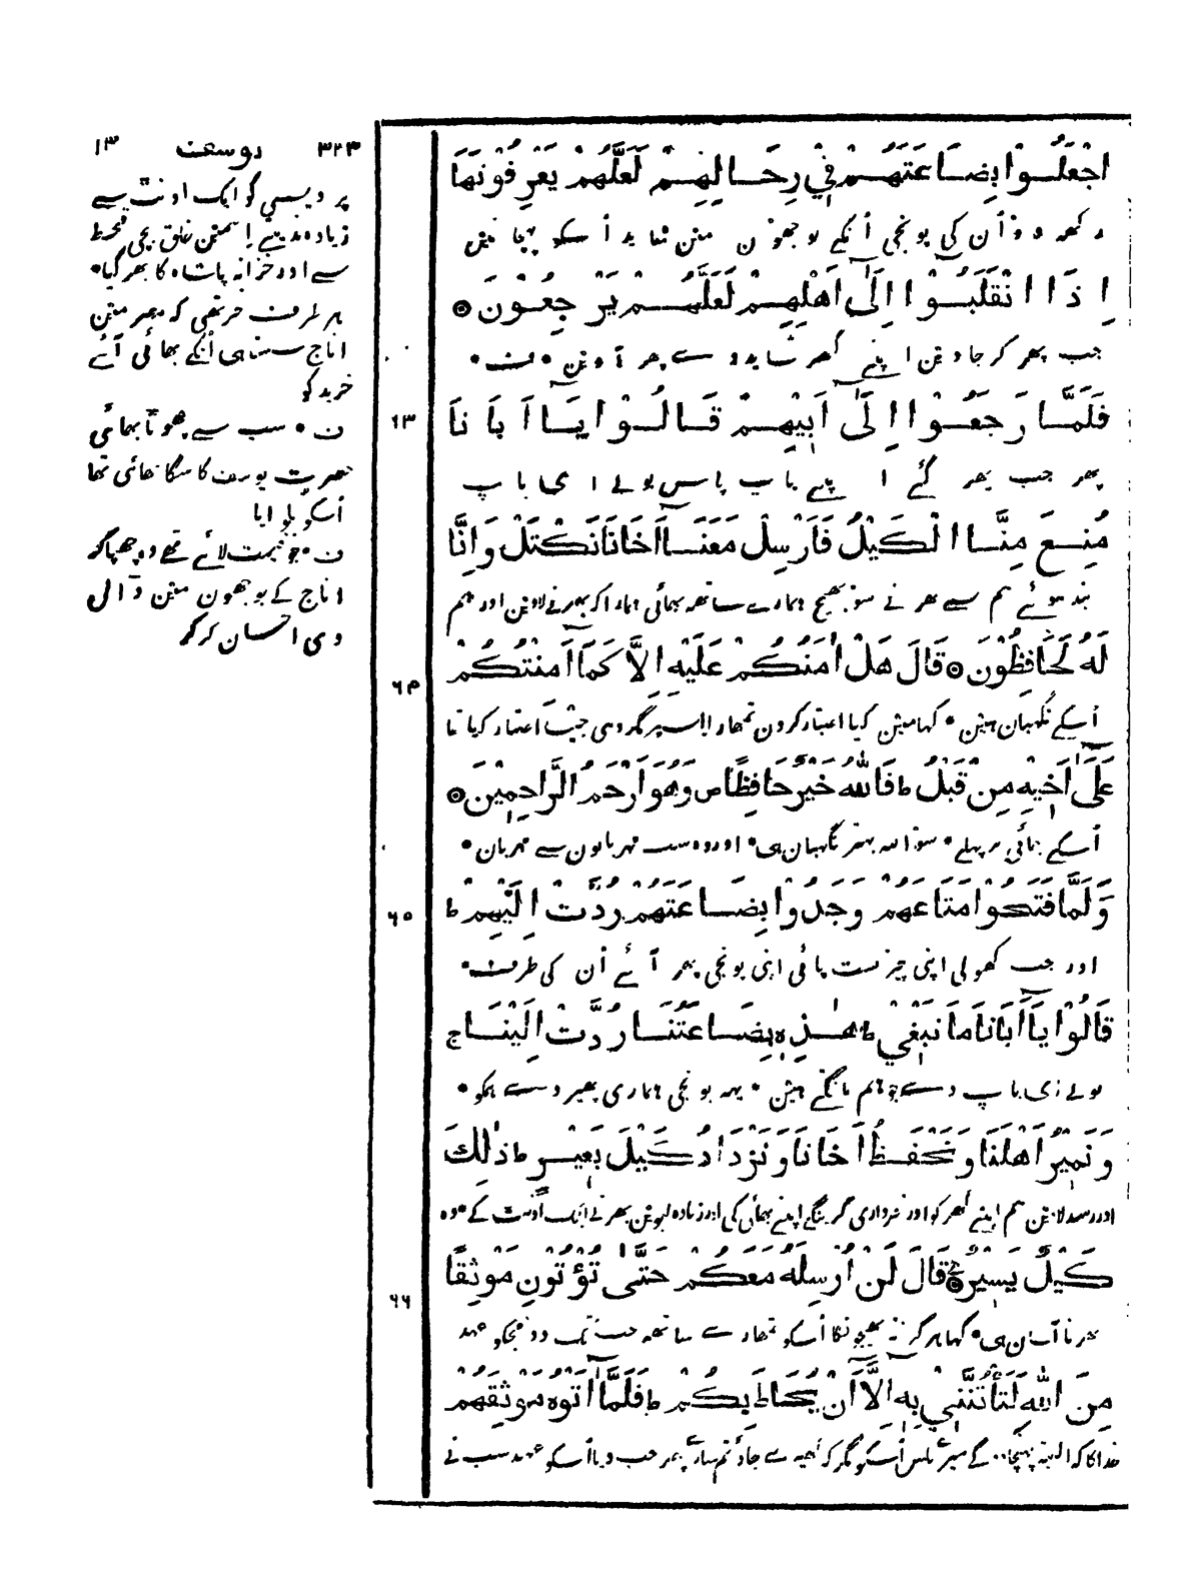 ۳۲۳ یوسف ۱۳
اجْعَلُوْا بِضَاعَتَهُمْ فِيْ رِحَالِهِمْ لَعَلَّهُمْ يَعْرِفُوْنَهَا
رکھہ دو اُن کی پونجی اُنکے بوجھون مین شاید اُسکو پہچانین
اِذَا انْقَلَبُوْا اِلَىٰٓ اَهْلِهِمْ لَعَلَّهُمْ يَرْجِعُوْنَ ۝
جب پھر کر جاوین اپنے گھر شاید وے پھر آوین • ف •
۱۳ فَلَمَّا رَجَعُوْا اِلَىٰٓ اَبِيْهِمْ قَالُوْا يَا اَبَانَا
پھر جب پھر گئے اپنے باپ پاس بولے ای باپ
مُنِعَ مِنَّا الْكَيْلُ فَاَرْسِلْ مَعَنَآ اَخَانَا نَكْتَلْ وَاِنَّا
بند ہوئے ہم سے بھرنے سو بھیج ہمارے ساتھہ بھائی ہمارا کہ بھرنے لاوین اور ہم
لَهُ لَحَافِظُوْنَ ۝ قَالَ هَلْ اٰمَنُكُمْ عَلَيْهِ اِلَّا كَمَآ اَمِنْتُكُمْ
۶۴ اُسکے نگہبان ہین • کہا مین کیا اعتبار کرون تمہارا اسپر مگر وہی جیسا اعتبار کیا تھا
عَلَىٰٓ اَخِيْهِ مِنْ قَبْلُ ط فَاللّٰهُ خَيْرٌ حَافِظًا ص وَهُوَ اَرْحَمُ الرَّاحِمِيْنَ ۝
اُسکے بھائی پر پہلے • سو اللہ بہتر نگہبان ہی • اور وہ سب مہربانون سے مہربان •
۶۵ وَلَمَّا فَتَحُوْا مَتَاعَهُمْ وَجَدُوْا بِضَاعَتَهُمْ رُدَّتْ اِلَيْهِمْ ط
اور جب کھولی اپنی چیز بست پائی اپنی پونجی پھر آئے اُن کی طرف •
قَالُوْا يَآ اَبَانَا مَا نَبْغِيْ ط هٰذِهِ بِضَاعَتُنَا رُدَّتْ اِلَيْنَا ج
بولے ای باپ دے جو ہم مانگتے ہین • یہہ پونجی ہماری پھیر دے ہمکو •
وَنَمِيْرُ اَهْلَنَا وَنَحْفَظُ اَخَانَا وَنَزْدَادُ كَيْلَ بَعِيْرٍ ط ذٰلِكَ
اور رسد لاوین ہم اپنے گھر کو اور خبرداری کرینگے اپنے بھائی کی اور زیادہ لیوین بھرنے ایک اونٹ کے • وہ
كَيْلٌ يَسِيْرٌ ۝ قَالَ لَنْ اُرْسِلَهُ مَعَكُمْ حَتّٰى تُؤْتُوْنِ مَوْثِقًا
۶۶ بھرنا آسان ہی • کہا ہرگز نہ بھیجونگا اُسکو تمہارے ساتھہ جب تک دو مجکو عہد
مِنَ اللّٰهِ لَتَأْتُنَّنِيْ بِهِ اِلَّآ اَنْ يُحَاطَ بِكُمْ ط فَلَمَّآ اٰتَوْهُ مَوْثِقَهُمْ
خدا کا کہ البتہ پہنچا گے میرے پاس اُسکو مگر کہ گھیرے جاؤ تم سارے پھر جب دیا اُسکو عہد سب نے
پردیسی کو ایک اونٹ سے
زیادہ نہ دیتے اسمین خلق بچی قحط
سے اور خزانہ پادشاہ کا بھر گیا •
ہر طرف خبر تھی کہ مصر مین
اناج سستا ہی اُنکے بھائی آئے
خرید کو
ف • سب سے چھوٹا بھائی
حضرت یوسف کا سگا بھائی تھا
اُسکو بلوایا
ف • جو قیمت لائے تھے وہ چھپا کر
اناج کے بوجھون مین ڈال
دی احسان کر کر